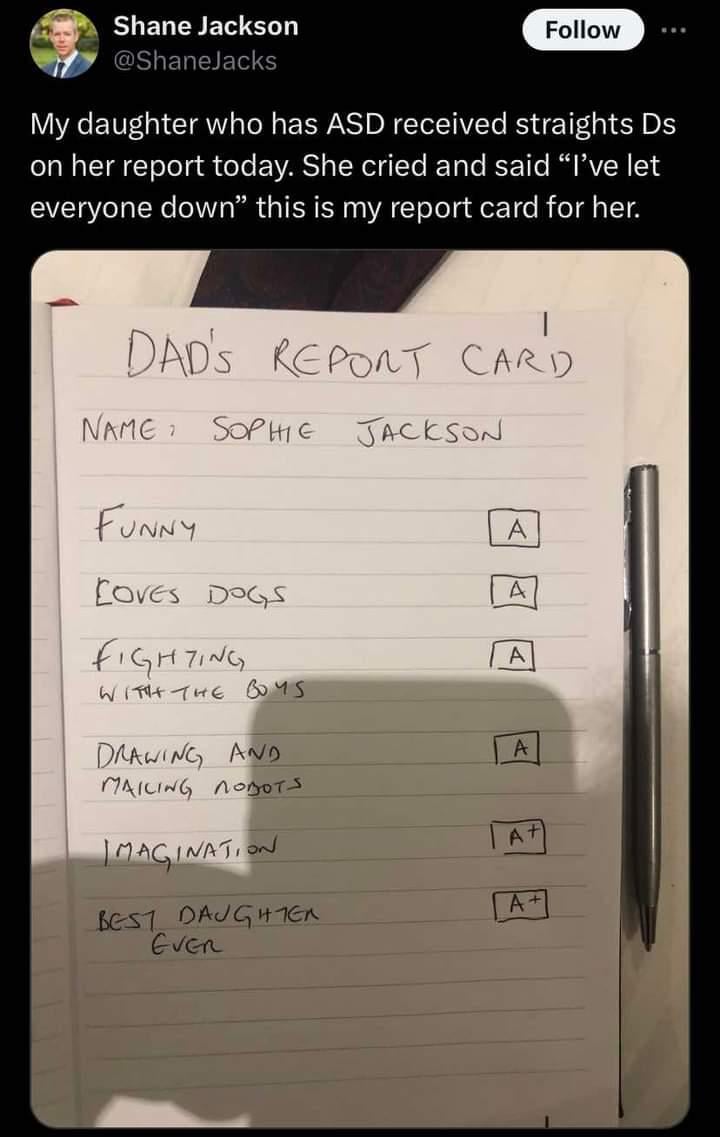 Shane Jackson
Follow
@ShaneJacks
My daughter who has ASD received straights Ds
on her report today. She cried and said “I’ve let
everyone down” this is my report card for her.
DAD's REPORT CARD
NAME: SOPHIE JACKSON
FUNNY A
LOVES DOGS A
FIGHTING A
WITH THE BOYS
DRAWING AND A
MAKING ROBOTS
IMAGINATION A+
BEST DAUGHTER A+
EVER